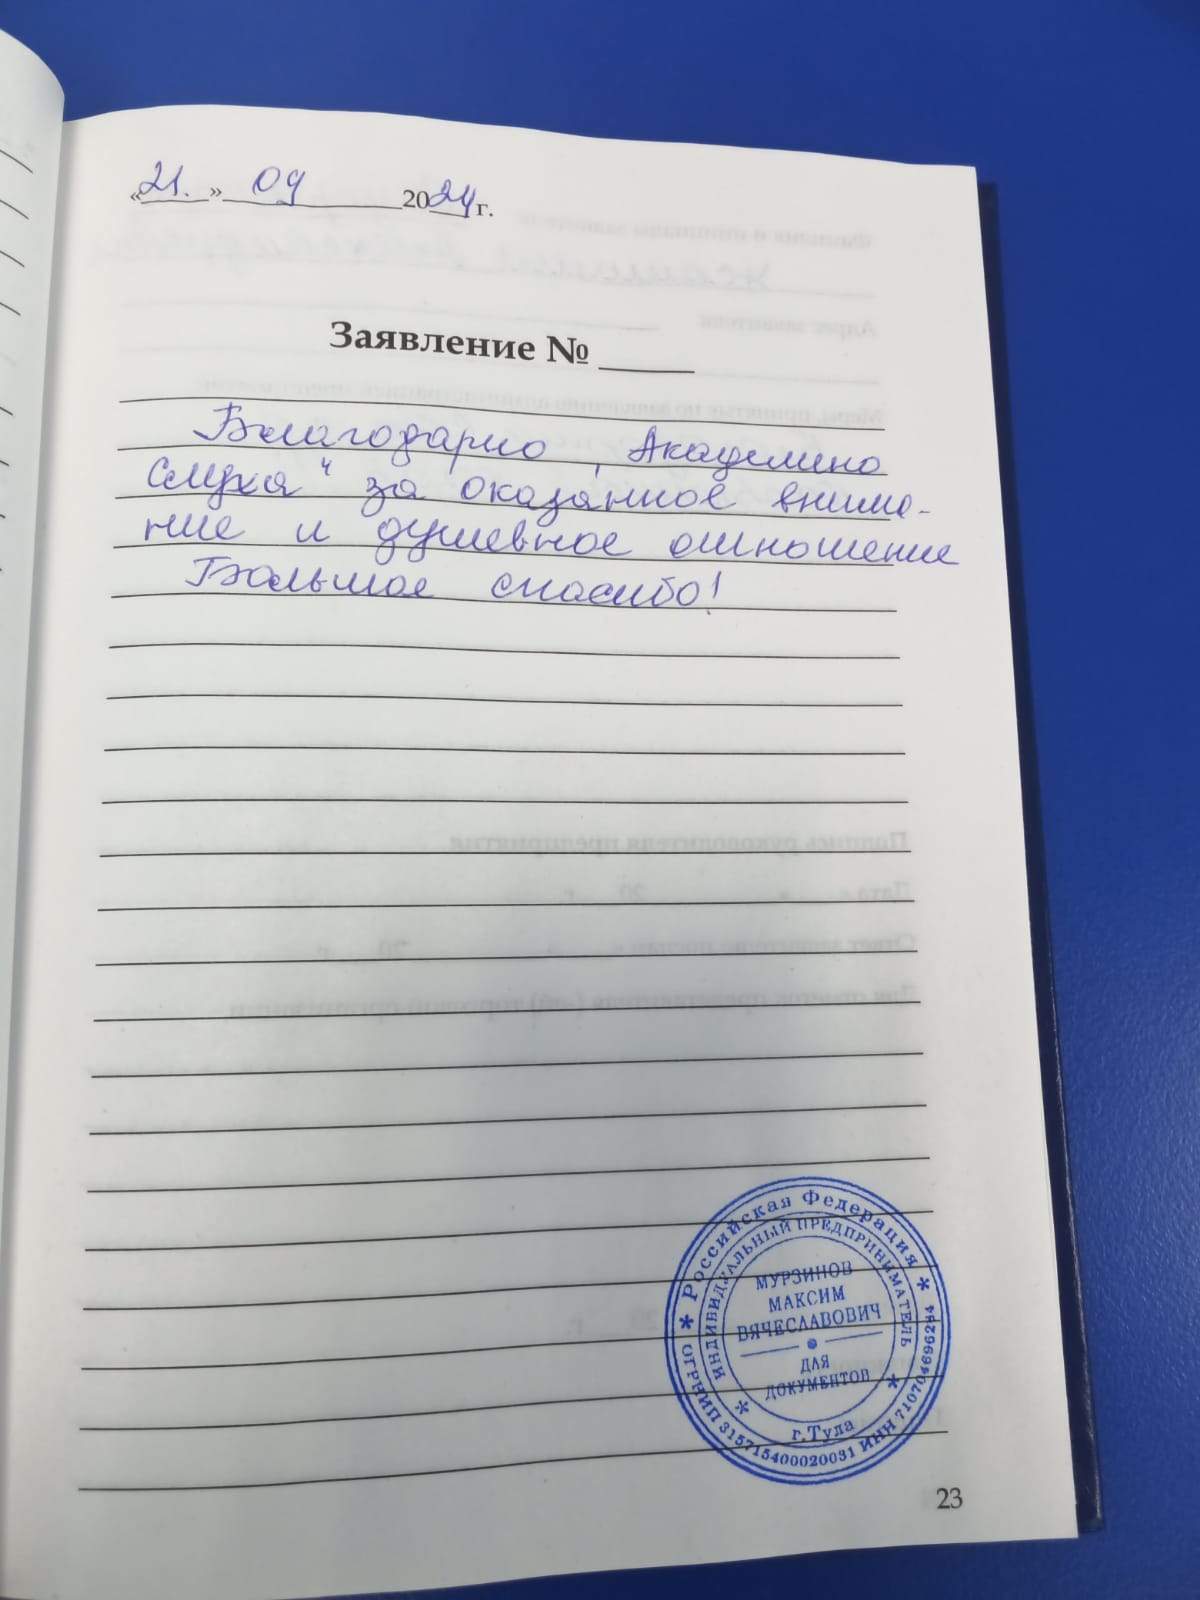 «21.» 09 2024 г.
Заявление № ____
Благодарю „Академию
слуха" за оказанное внима-
ние и душевное отношение
Большое спасибо!
* Российская Федерация *
ИНДИВИДУАЛЬНЫЙ ПРЕДПРИНИМАТЕЛЬ
МУРЗИНОВ
МАКСИМ
ВЯЧЕСЛАВОВИЧ
ДЛЯ
ДОКУМЕНТОВ
г.Тула
ОГРНИП 315715400020031 ИНН 710704696284
23